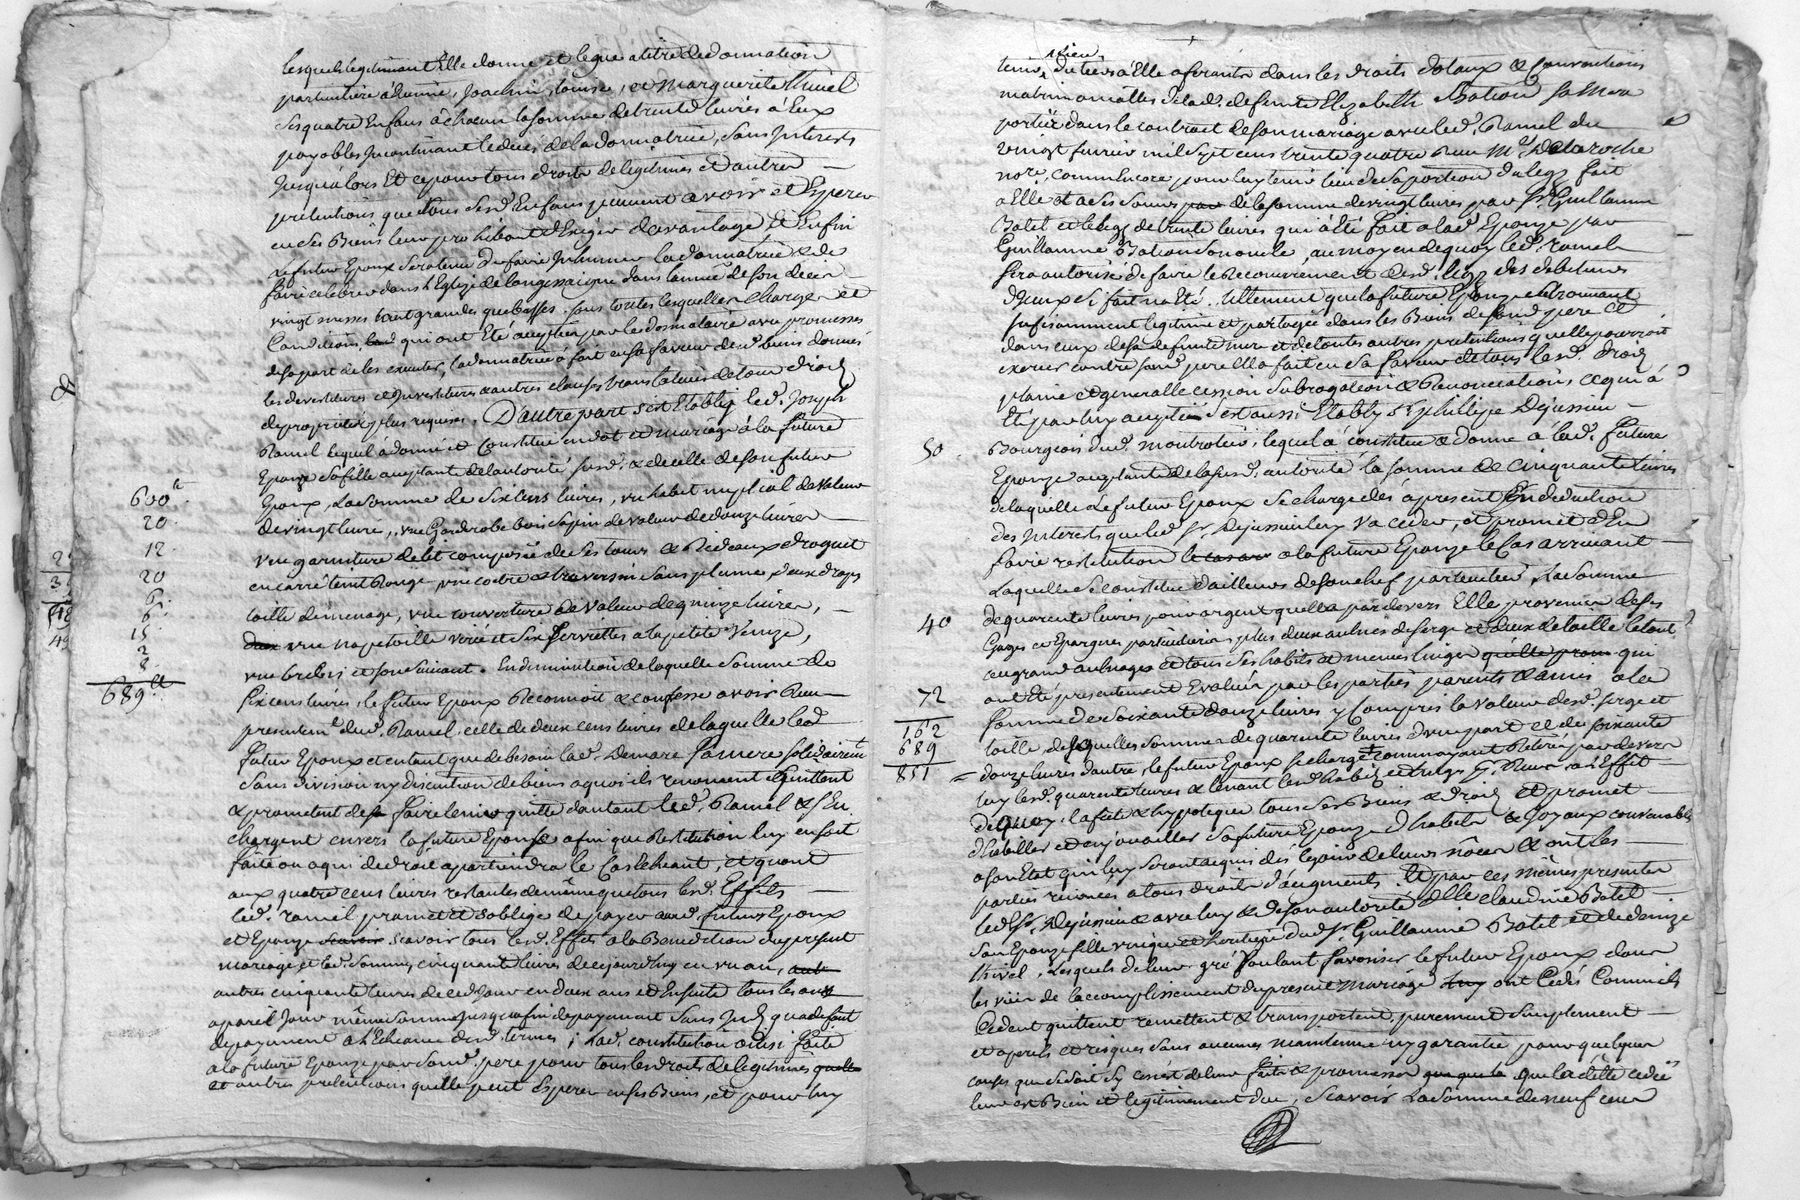 lesquels legitimant Elle donne et legue a titre de donnation
particuliere a Etienne, Joachim, Louise, et Marguerite Thivel
ses quatre Enfans à chacun la somme de trente livres à Eux
payables Incontinant le deces de la donnatrice, sans Interests
Jusqu'alors Et ce pour tous droits de legitimes et autres
pretentions que tous sesd. Enfans peuvent avoir et Esperer
en ses Biens leur prohibant d'Exiger davantage Et Enfin
Le futur Epoux sera tenu de faire Inhumer la donnatrice & de
faire celebrer dans l'Eglise de Longessaigne dans l'année de son deces
vingt messes tant grandes que basses. sous toutes lesquelles charges et
Conditions qui ont Eté acceptées par le donnataire avec promesses
de sa part de les executer, la donnatrice a fait en sa faveur desd. biens donnés
les devestitures et Investitures & autres clauses translatives de tous droits
de proprieté plus requises. D'autre part s'est Etably led. Joseph
Ramel lequel à donné et Constitué en dot et mariage à la future
Epouze sa fille acceptante de l'autorité susd. & de celle de son futur
Epoux, La somme de six cens livres, un habit nuptial de valeur
de vingt livres, une Garderobe bois sapin de valeur de douze livres
une garniture de lit composée de ses tours & Rideaux droguet
en carré teint Rouge, une coitre & traversin sans plume, deux draps
toille de menage, une couverture de valeur de quinze livres,
une nape toille et six serviettes a la petite Venize,
une brebis et son suivant. En diminution de laquelle somme de
six cens livres, le futur Epoux Reconnoit & confesse avoir Reçu
presentemt. dud. Ramel celle de deux cens livres de laquelle led.
futur Epoux et en tant que de besoin lad. Demare sa mere solidairemt.
sans division ny discution de biens a quoi ils renoncent quittent
& promettent de faire tenir quitte d'autant led. Ramel & s'En
chargent envers la future Epouse afin que Restitution luy en soit
faite ou a qui de droit apartiendra le Cas Echeant, et quant
aux quatre cens livres restantes de même que tous lesd. Effets
led. ramel promet et s'oblige de payer auxd. futurs Epoux
et Epouze scavoir tous lesd. Effets a la Benediction du present
mariage et lad. somme, cinquante livres de cejourdhuy en un an,
autres cinquante livres de ced. jour en deux ans et Ensuite tous les ans
a pareil Jour même somme jusqua fin de payement sans
de payement a l'Echeance desd. termes; lad. constitution ainsi faite
a la future Epouze par sond. pere pour tous les droits de legitimes
et autres pretentions qu'elle peut Esperer en ses Biens, et pour luy
600#
20.
12.
20
6.
6.
15
2
8.
689#
tenir lieu de ceux à Elle aferants dans les droits dotaux & conventions
matrimonialles de lad. defunte Elizabeth Bation sa Mere
portées dans le contrat de son mariage avec led. Ramel du
vingt fevrier mil sept cens trente quatre Reçu Me. Delaroche
nore., comm'Encore pour luy tenir lieu de sa portion du legs fait
a Elle et a ses soeurs de la somme de vingt livres par sr. Guillaume
Batel et le legs de trente livres qui a été fait a lad. Epouze par
Guillaume Bation son oncle, au moyen de quoy led. ramel
sera autorisé de faire le Recouvrement desd. legs des debiteurs
d'yceux si fait n'a Eté. tellement que la future Epouze se trouvant
sufisamment legitimée et partagée dans les Biens de sond. pere Et
dans ceux de sa defunte mere et de toutes autres pretentions quelle pourroit
exercer contre sond. pere Ella fait en sa faveur de tous lesd. droits
plaine et generalle cession subrogation & Renonciations, ce qui à
Eté par luy accepté. s'est aussi Etably sr. phillipe Dejussieu
Bourgeois dud. montrotier, lequel à constitué & donné à lad. future
Epouze acceptante de lasusd. autorité la somme de cinquante livres
de laquelle Le futur Epoux se charge dès apresent En deduction
des Interets que led. sr. Dejussieu luy va ceder, et promet d'En
faire restitution a la future Epouze le Cas arrivant
Laquelle se constitue d'ailleurs de son chef particulier La somme
de quarente livres pour argent quella pardevers Elle provenier de ses
Gages et Epargnes particulieres plus deux aulnes de serge et deux de toille le tout
au grand aulnage et tous ses habits et menus linges qui
ont Eté presentement Evalués par les parties parents & amis a la
somme de soixante douze livres y Compris la valeur desd. serge et
toille, desquelles sommes de quarente livres d'une part et de soixante
douze livres d'autre, le futur Epoux se charge commayant Retiré par devers
luy lesd. quarente livres & tenant lesd. habits et linges pr. Reçu a l'Effet
de quoy la fute & hypoteque tous ses Biens & droits Et promet
d'habiller et enjoyailler sa future Epouze d'habits & Joyaux convenables
a son Etat qui luy seront acquis dès le jour de leurs nôces & ont les
parties renoncé a tous droits d'augments. Et par ces mêmes presentes
led. sr. Dejussieu & avec luy & de son autorité delle claudine Batel
son Epouze fille unique et heritiere dud. sr. Guillaume Batel et de denize
thivel, Lesquels de leur gré Voulant favoriser le futur Epoux dans
les vües de l'accomplissement du present mariage ont Cedés Commiels
Cedent quittent remettent & transportent purement simplement
et a perils et risques sans aucunes maintenue ny garantie pour quelques
causes que se soit Sy cen'est de leur faits & promesses que la dette cedée
leur est Bien et legitimement due, Scavoir La somme de neuf cens
50.
40
72
162
689
851